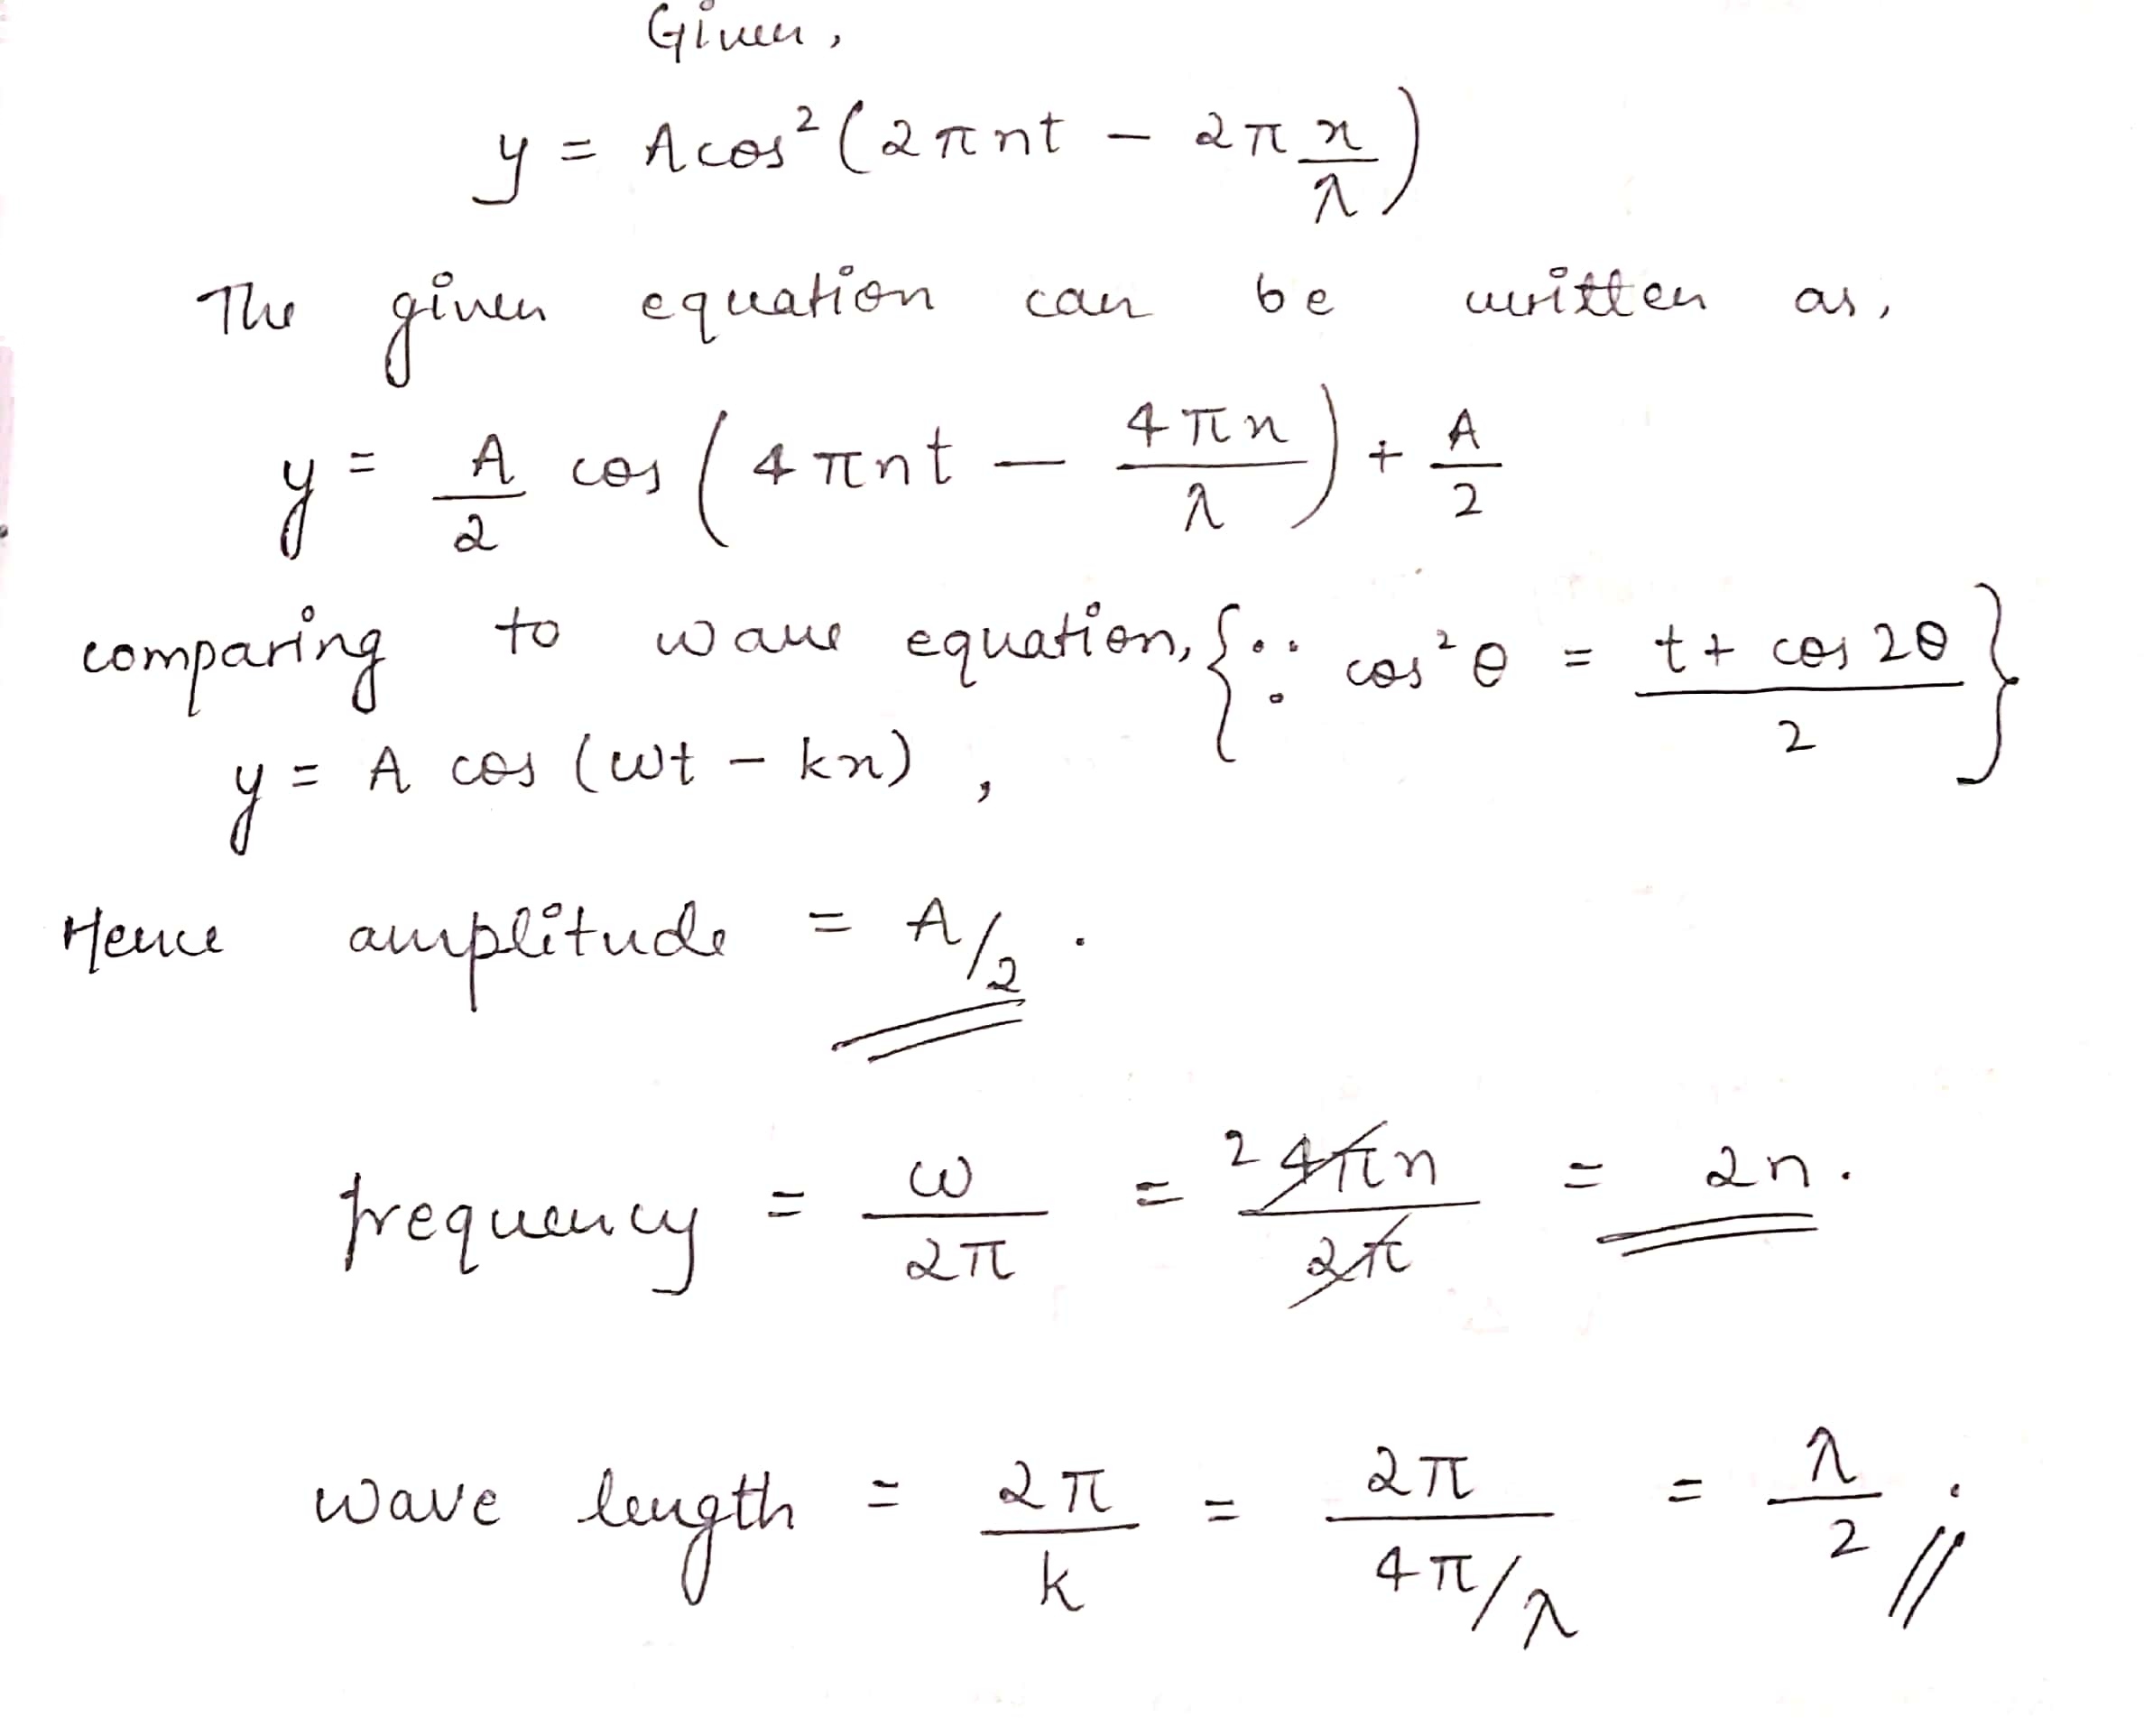 Given,
y = A cos² (2πnt - 2π x/λ)
The given equation can be written as,
y = A/2 cos (4πnt - 4πx/λ) + A/2
comparing to wave equation, {∵ cos²θ = t + cos2θ/2}
y = A cos (ωt - kx),
Hence amplitude = A/2.
frequency = ω/2π = ² 4πn/2π = 2n.
wave length = 2π/k = 2π/4π/λ = λ/2.//